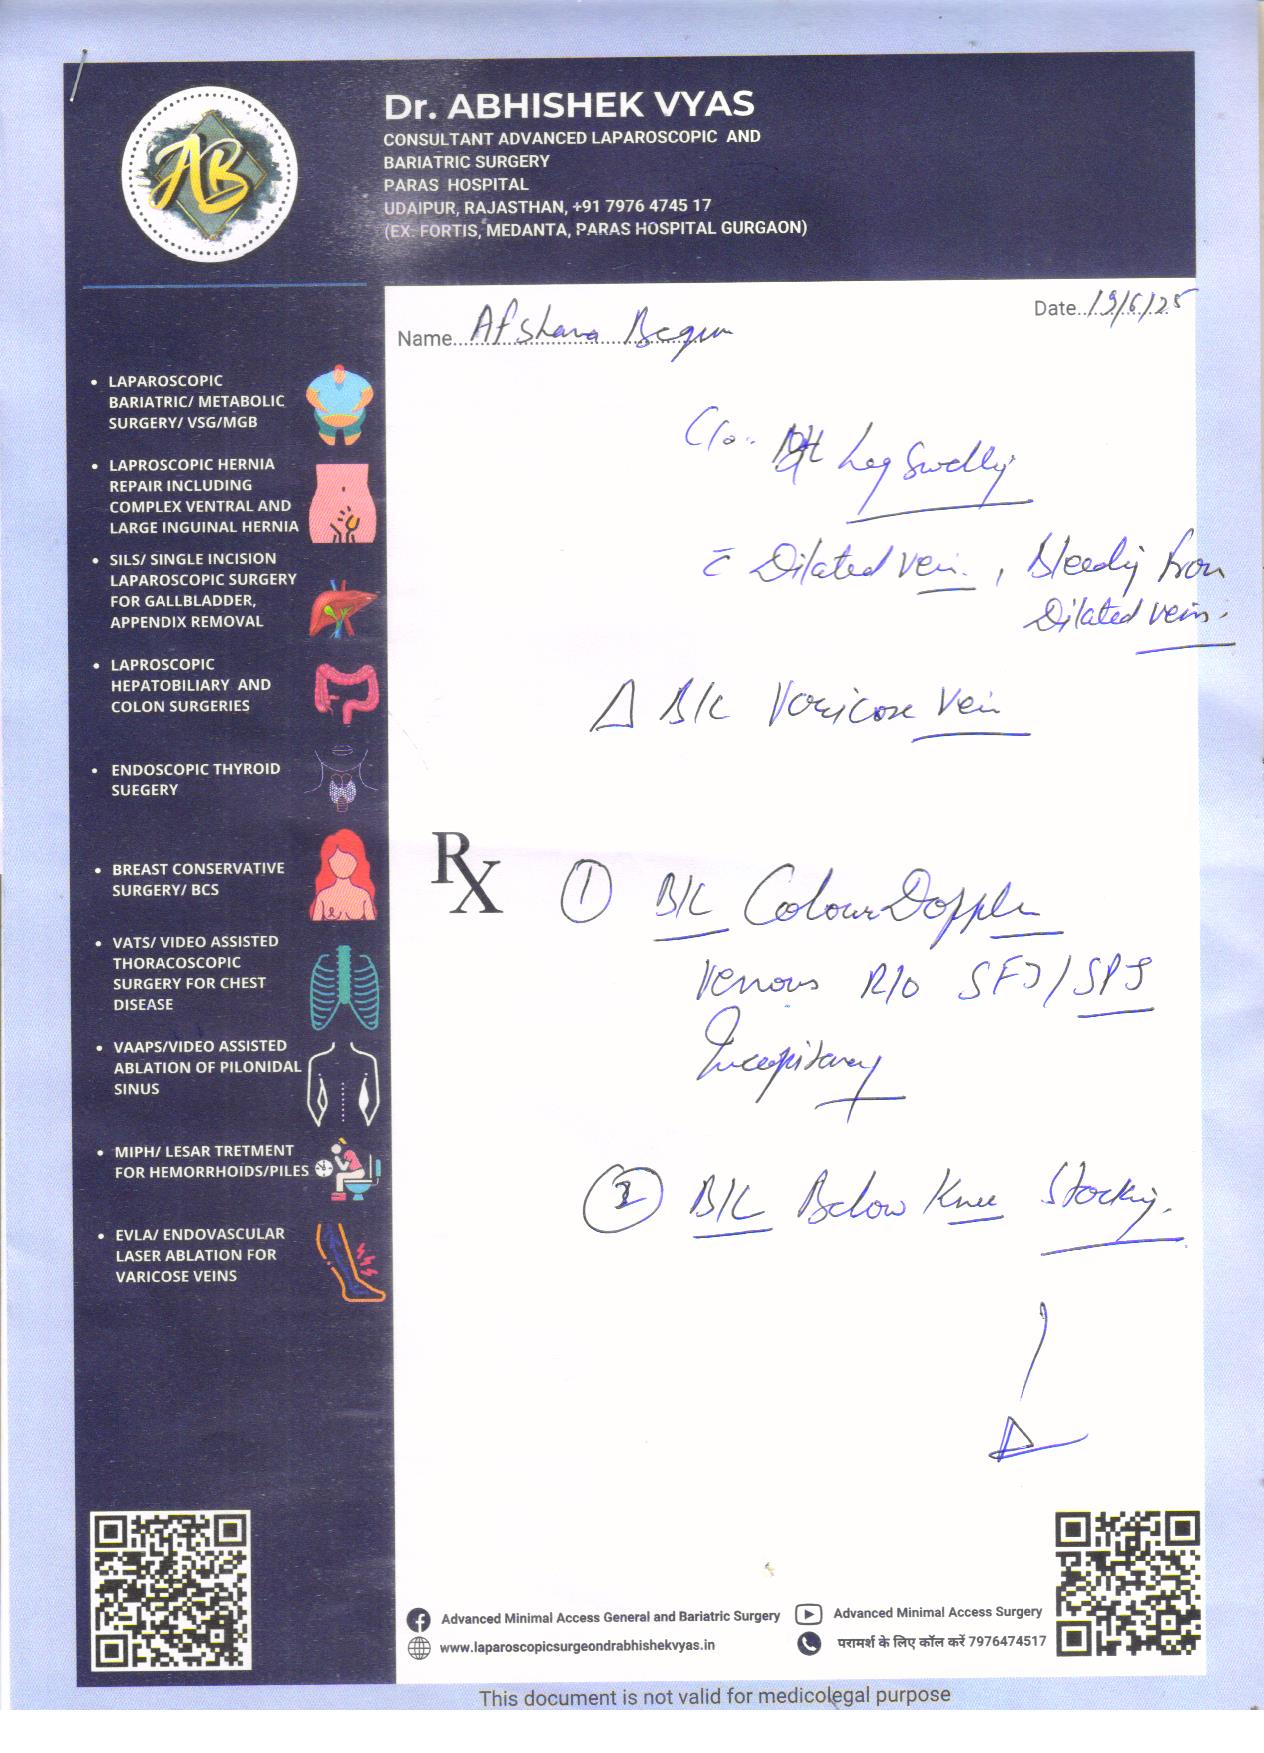 Dr. ABHISHEK VYAS
CONSULTANT ADVANCED LAPAROSCOPIC AND
BARIATRIC SURGERY
PARAS HOSPITAL
UDAIPUR, RAJASTHAN, +91 7976 4745 17
(EX. FORTIS, MEDANTA, PARAS HOSPITAL GURGAON)
AB
Date..19/6/25
Name...Afshana Begum
• LAPAROSCOPIC
BARIATRIC/ METABOLIC
SURGERY/ VSG/MGB
• LAPROSCOPIC HERNIA
REPAIR INCLUDING
COMPLEX VENTRAL AND
LARGE INGUINAL HERNIA
• SILS/ SINGLE INCISION
LAPAROSCOPIC SURGERY
FOR GALLBLADDER,
APPENDIX REMOVAL
• LAPROSCOPIC
HEPATOBILIARY AND
COLON SURGERIES
• ENDOSCOPIC THYROID
SUEGERY
• BREAST CONSERVATIVE
SURGERY/ BCS
• VATS/ VIDEO ASSISTED
THORACOSCOPIC
SURGERY FOR CHEST
DISEASE
• VAAPS/VIDEO ASSISTED
ABLATION OF PILONIDAL
SINUS
• MIPH/ LESAR TRETMENT
FOR HEMORRHOIDS/PILES
• EVLA/ ENDOVASCULAR
LASER ABLATION FOR
VARICOSE VEINS
C/o.. Leg Swelling
c̄ Dilated vein. , Bleeding from
Dilated vein.
Δ B/L Varicose Vein
Rx
① B/L Colour Doppler
Venous R/o SFJ/SPJ
② B/L Below Knee Stocking.
Advanced Minimal Access General and Bariatric Surgery
Advanced Minimal Access Surgery
www.laparoscopicsurgeondrabhishekvyas.in
परामर्श के लिए कॉल करें 7976474517
This document is not valid for medicolegal purpose